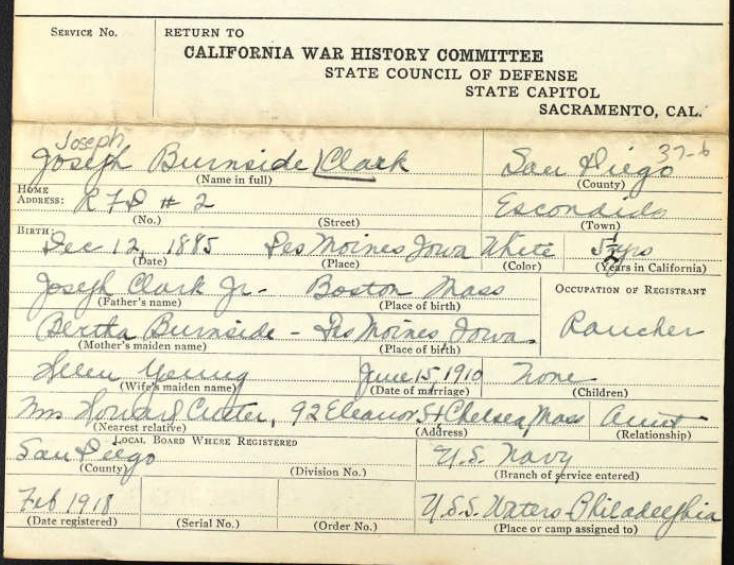 SERVICE NO.
RETURN TO
CALIFORNIA WAR HISTORY COMMITTEE
STATE COUNCIL OF DEFENSE
STATE CAPITOL
SACRAMENTO, CAL.
Joseph
37-6
Joseph Burnside Clark San Diego
(Name in full) (County)
HOME ADDRESS: R F D # 2 Escondido
(No.) (Street) (Town)
BIRTH: Dec 12, 1885 Des Moines Iowa White yrs
(Date) (Place) (Color) (Years in California)
Joseph Clark Jr. Boston Mass OCCUPATION OF REGISTRANT
(Father's name) (Place of birth)
Bertha Burnside - Des Moines, Iowa. Rancher
(Mother's maiden name) (Place of birth)
Helen Young June 15, 1910 None
(Wife's maiden name) (Date of marriage) (Children)
Mrs Howard Custer, 92 Eleanor St Chelsea, Mass Aunt
(Nearest relative) (Address) (Relationship)
LOCAL BOARD WHERE REGISTERED
San Diego U.S. Navy
(County) (Division No.) (Branch of service entered)
Feb 1918 U.S.S. Waters-Philadelphia
(Date registered) (Serial No.) (Order No.) (Place or camp assigned to)